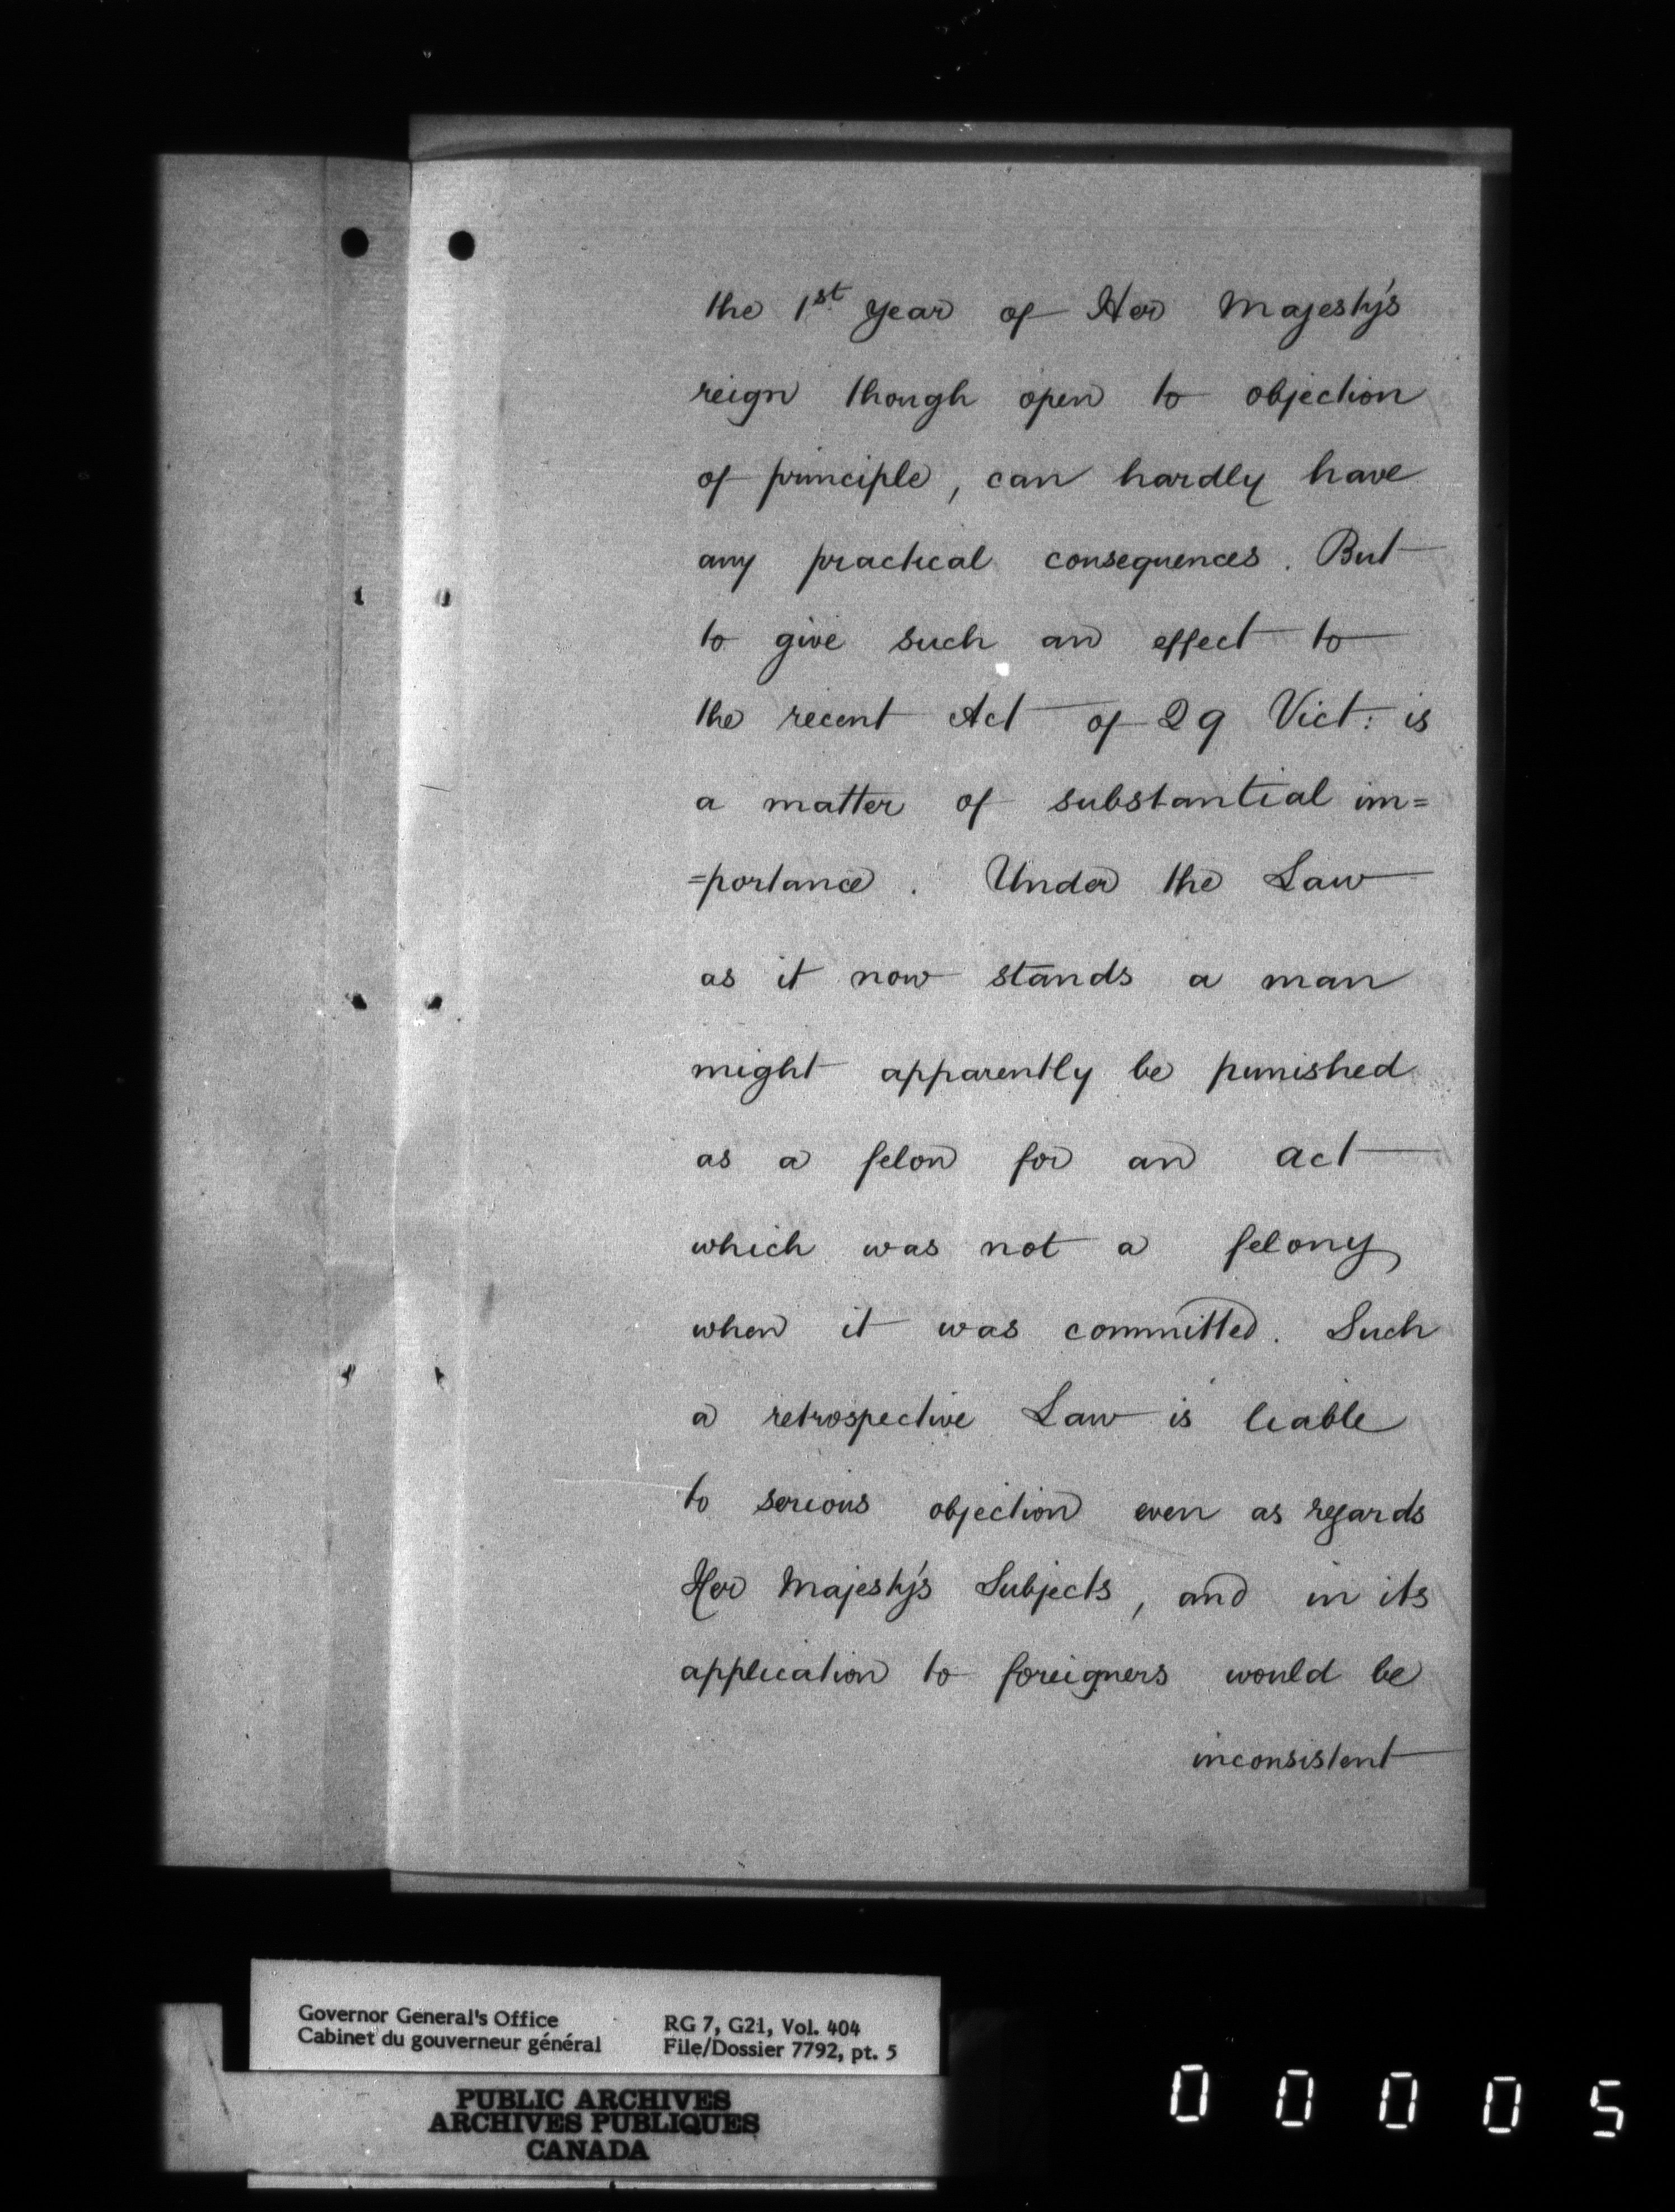 the 1st year of Her Majesty's
reign though open to objection
of principle, can hardly have
any practical consequences. But
to give such an effect to
the recent Act of 29 Vict: is
a matter of substantial im=
=portance. Under the Law
as it now stands a man
might apparently be punished
as a felon for an act
which was not a felony
when it was committed. Such
a retrospective Law is liable
to serious objection even as regards
Her Majesty's Subjects, and in its
application to foreigners would be
inconsistent
Governor General's Office
Cabinet du gouverneur général
RG 7, G21, Vol. 404
File/Dossier 7792, pt. 5
PUBLIC ARCHIVES
ARCHIVES PUBLIQUES
CANADA
00005